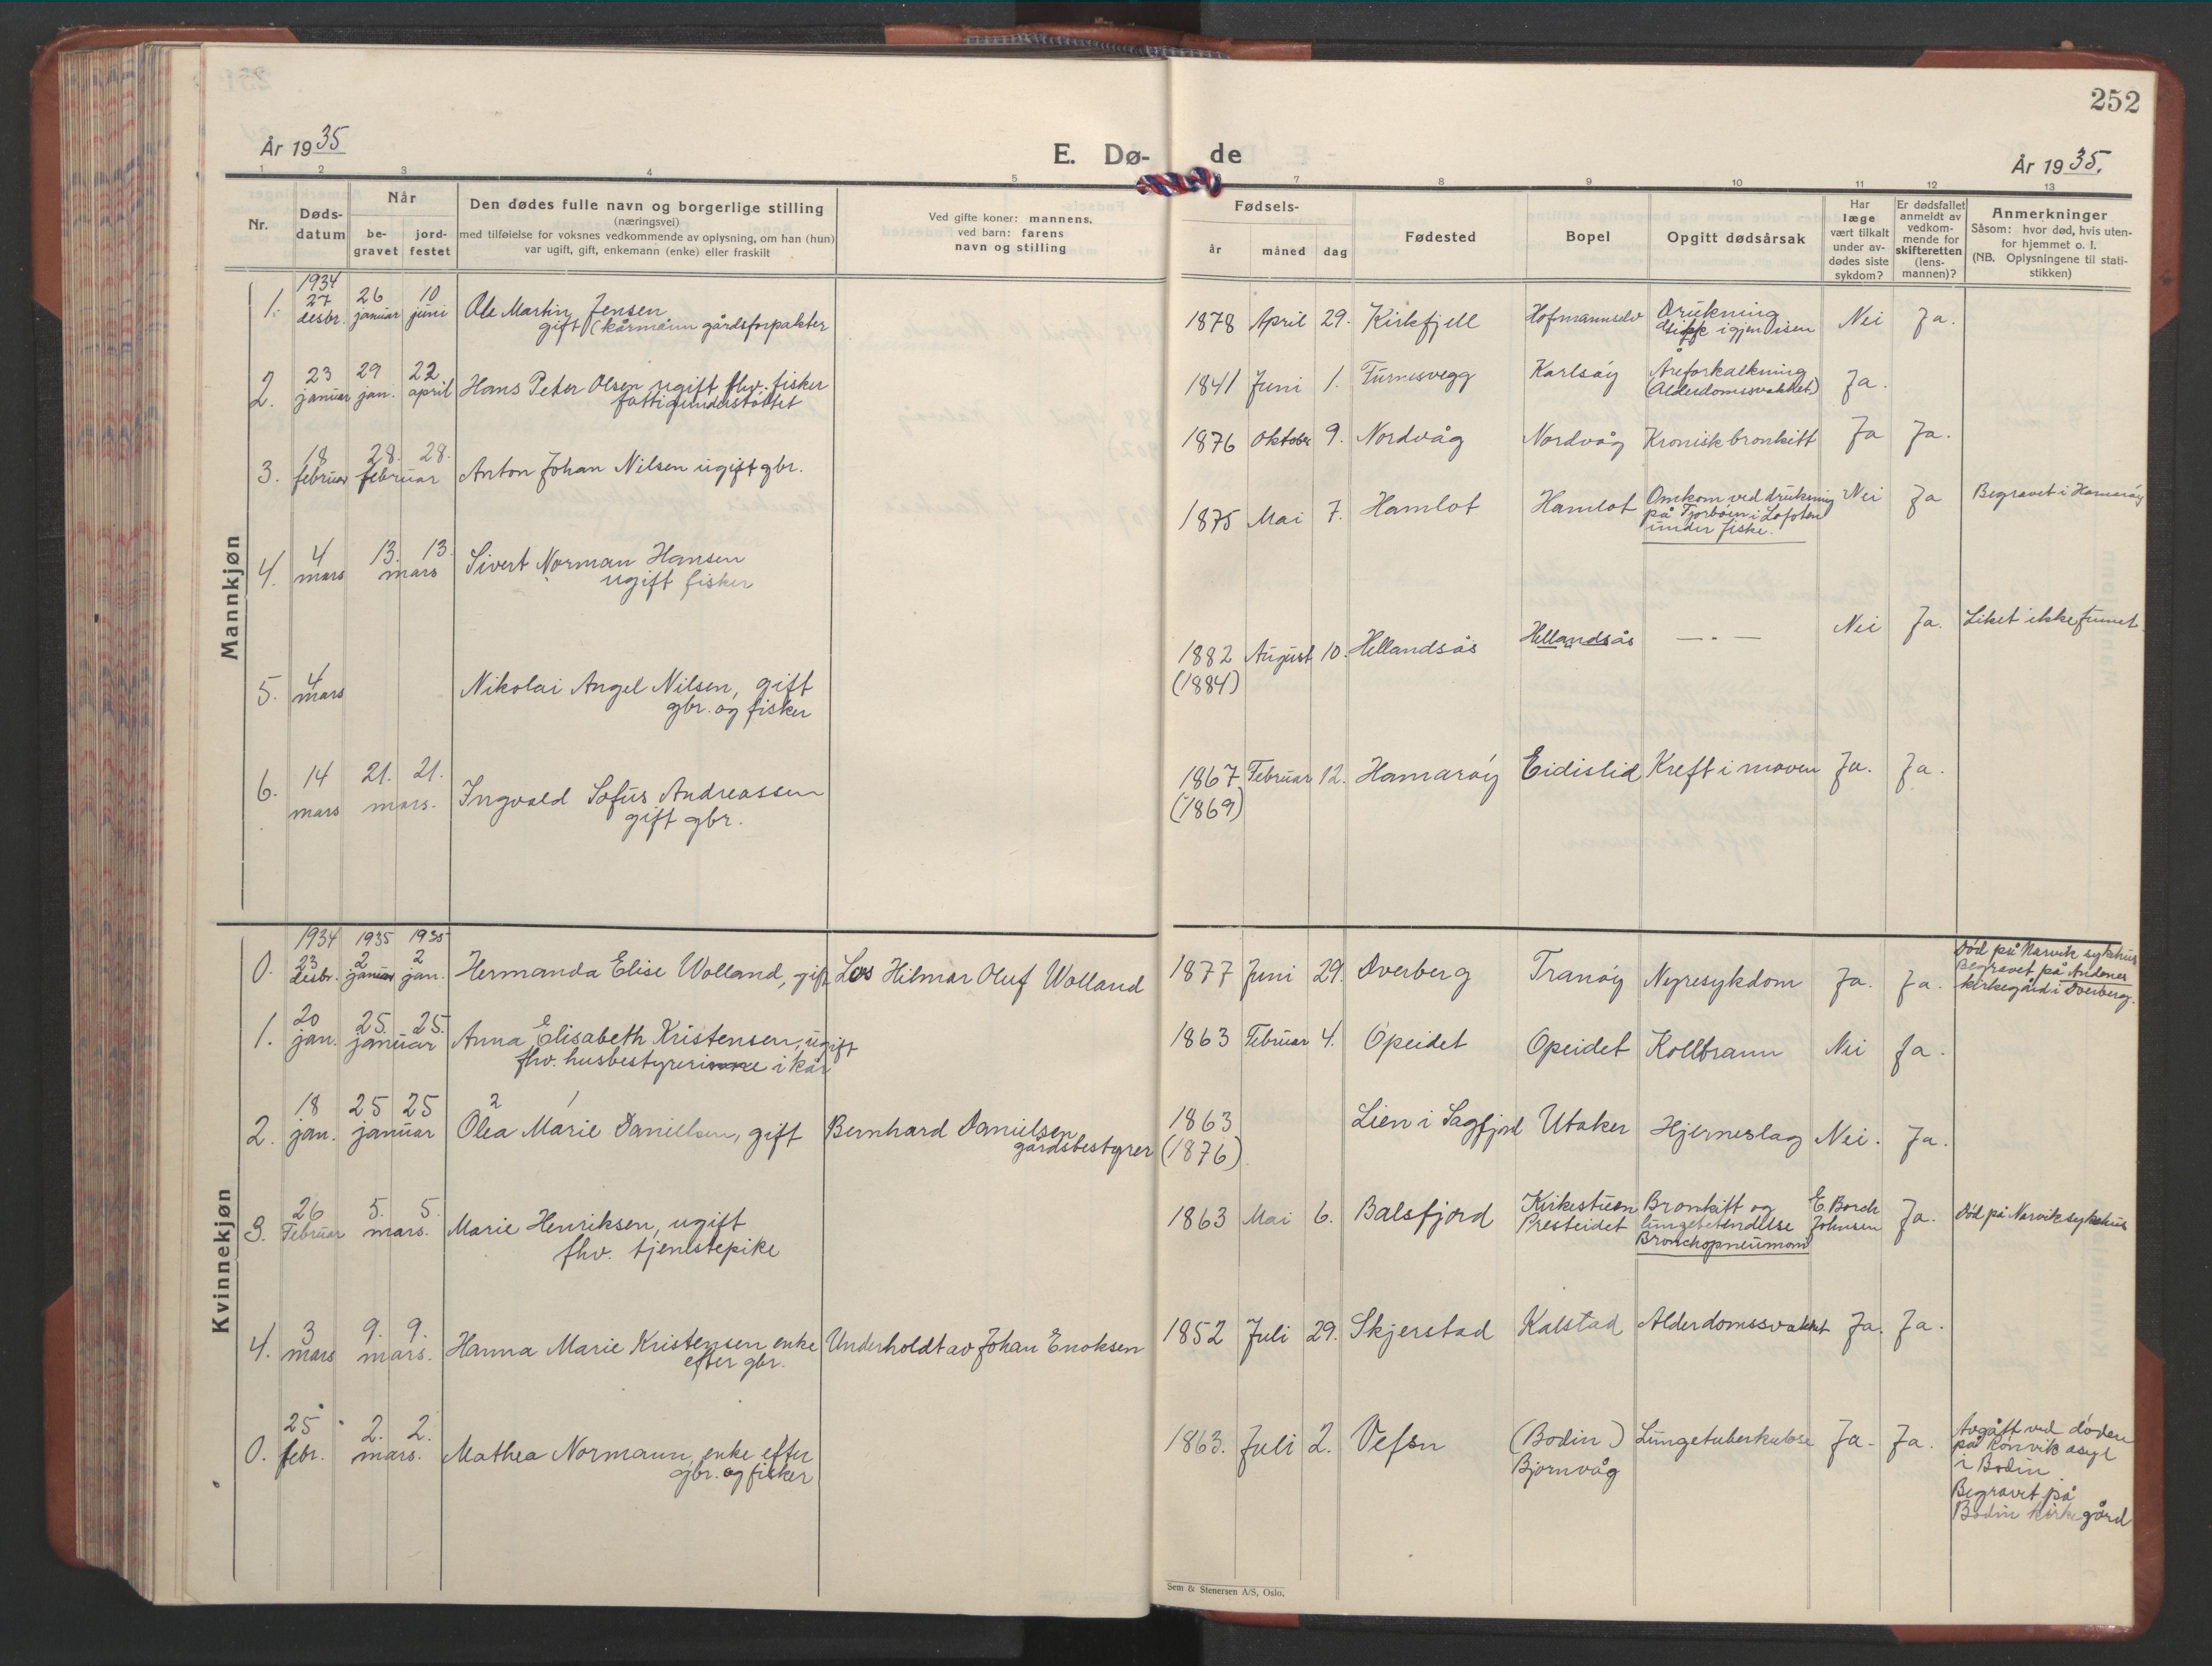 252
År 1935
E. Dø-
de
År 1935.
1 2 3 4 5 7 8 9 10 11 12 13
Nr.
Døds-
datum
Når
be-
gravet
jord-
festet
Den dødes fulle navn og borgerlige stilling
(næringsvei)
med tilføielse for voksnes vedkommende av oplysning, om han (hun)
var ugift, gift, enkemann (enke) eller fraskilt
Ved gifte koner: mannens.
ved barn: farens
navn og stilling
Fødsels-
år måned dag
Fødested
Bopel
Opgitt dødsårsak
Har
læge
vært tilkalt
under av-
dødes siste
sykdom?
Er dødsfallet
anmeldt av
vedkom-
mende for
skifteretten
(lens-
mannen)?
Anmerkninger
Såsom: hvor død, hvis uten-
for hjemmet o. l.
(NB. Oplysningene til stati-
stikken)
Mannkjøn
1934
1. 27 desbr. 26 januar 10 juni Ole Martin Jensen
gift (kårmann gårdsforpakter
1878 April 29. Kirkfjell Hofmannselv Drukning
igjen isen
Nei Ja.
2. 23 januar 29 jan. 22 april Hans Peter Olsen ugift fhv. fisker
fattigunderstøttet
1841 Juni 1. Furnesvegg Karlsøy Åreforkalkning
(Alderdomssvakhet)
Ja.
3. 18 februar 28. 28. februar Anton Johan Nilsen ugift gbr.
1876 Oktober 9. Nordvåg Nordvåg Kronisk bronkitt Ja Ja.
4. 4 mars 13. 13. mars Sivert Norman Hansen
ugift fisker
1875 Mai 7. Hamlot Hamlot Omkom ved drukning
på i Lofoten
under fiske.
Nei Ja Begravet i Hamarøy
5. 4 mars Nikolai Angel Nilsen, gift
gbr. og fisker
1882 August 10. Hellandsås Hellandsås — " — Nei Ja. Liket ikke funnet.
(1884)
6. 14 mars 21. 21. mars. Ingvald Sofus Andreassen
gift gbr.
1867 Februar 12. Hamarøy Eidislid Kreft i maven Ja. Ja.
(1869)
Kvinnekjøn
1934 1935 1935
0. 23 desbr. 2 januar 2 jan. Hermanda Elise Wolland, gift Los Hilmar Oluf Wolland
1877 Juni 29. Dverberg Tranøy Nyresykdom Ja. Ja. Død på Narvik sykehus
Begravet på Andenes
kirkegård i Dverberg.
1. 20 jan. 25. 25. januar Anna Elisabeth Kristensen, ugift
fhv. husbestyrerinne i kår
1863 Februar 4. Opeidet Opeidet Koldbrann Nei Ja.
2. 18 jan. 25 25 januar Olea Marie Danielsen, gift Bernhard Danielsen
gårdsbestyrer
2 1
1863 Lien i Sagfjord Utaker Hjerneslag Nei. Ja.
(1876)
3. 26 Februar 5. 5. mars. Marie Henriksen, ugift
fhv. tjenestepike
1863 Mai 6. Balsfjord Kirkestuen
Presteidet
Bronkitt og
lungebetendelse
Bronchopneumoni
E. Borch
Johnsen
Ja. Død på Narvik sykehus
4. 3 mars 9. 9. mars. Hanna Marie Kristensen enke
efter gbr.
Underholdt av Johan Enoksen
1852 Juli 29. Skjerstad Kalstad Alderdomssvakhet Ja. Ja.
0. 25 febr. 2. 2. mars. Mathea Normann, enke efter
gbr. og fisker
1863. Juli 2. Vefsn (Bodin)
Bjørnvåg
Lungetuberkulose Ja. Ja. Avgått ved døden
på Rønvik asyl
i Bodin
Begravet på
Bodin kirkegård
Sem & Stenersen A/S, Oslo.